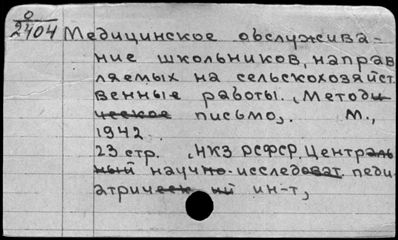 0
2404
Медицинское обслужива-
ние школьников, направ
ляемых на сельскохозяйст
венные работы. "Методи
ческое письмо". М.,
1942.
23 стр. "НКЗ РСФСР. Централь
ный научно-исследоват. педи
атрический ин-т,